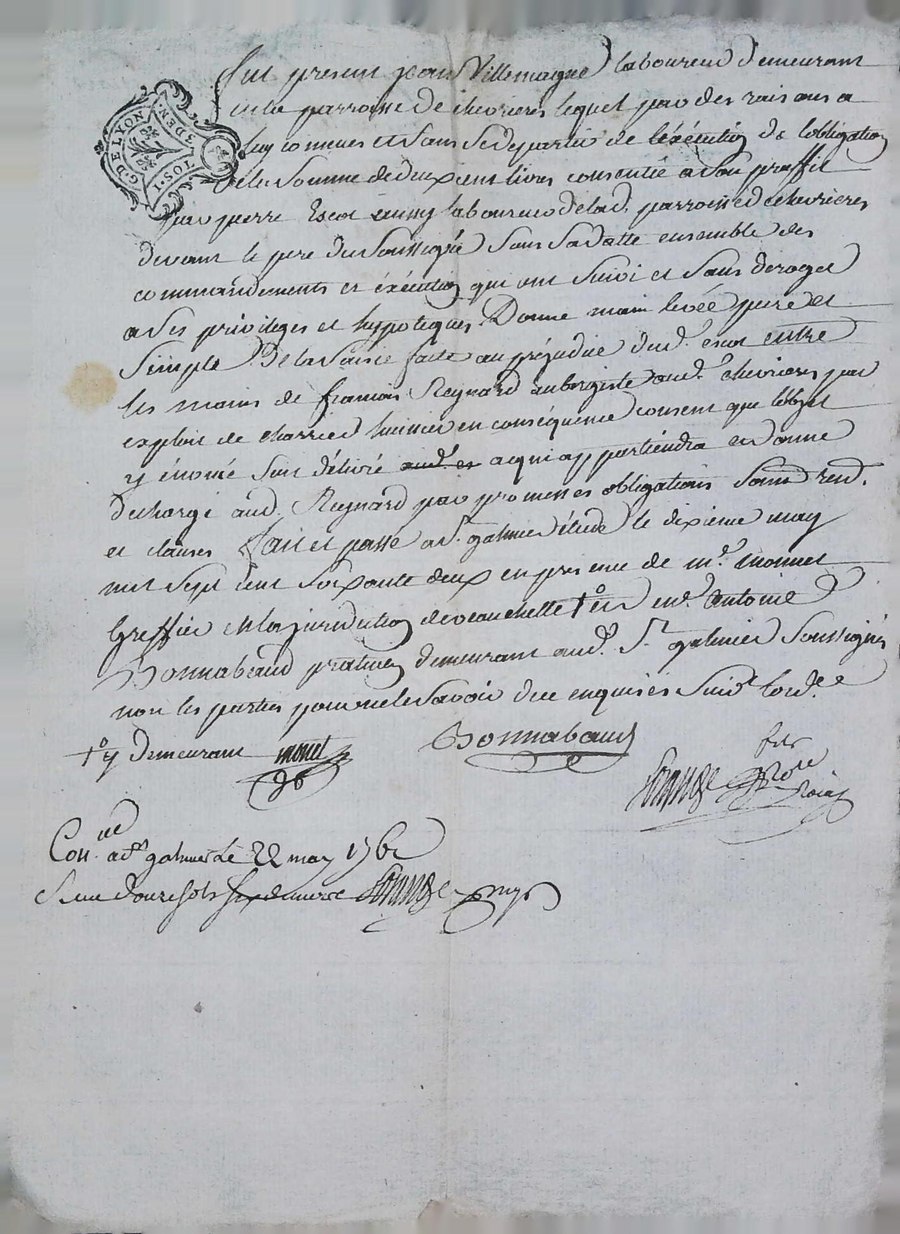 G. DE LYON
1. SOL. 5 DEN.
fut present jean Villemagne laboureur demeurant
en la parroisse de chevrieres lequel par des raisons a
luy connues et sans se departir de l'exécution de l'obligation
de la somme de deux cent livres consentie a son proffit
par pierre Escot aussy laboureur de lad. parroisse de chevrieres
devant le pere du soussigné sous sa datte ensemble des
commandements et éxécution qui ont suivi et sans deroger
a ses privileges et hypoteques. Donne main levée pure et
simple De la saisie faite au préjudice dud. escot entre
les mains de francois Reynard aubergiste aud. chevrieres par
exploit de charrier huissier en conséquence consent que l'objet
y énoncé soit délivré a qui appartiendra en donne
decharge aud. Reynard par promesses obligations soumis. rend.
et clauses fait et passé a St. galmier étude le dixieme may
mil sept cent soixante deux en presence de me. monnet
Greffier en la jurisdiction de veauchette +o et me. antoine
Bonnabaud praticien demeurant aud. St. galmier soussignés
non les parties pour ne le savoir de ce enquises suivt. lord.ce
+o y demeurant monet
Bonnabaud
Con.lé a St galmier le 22 may 1762
Reçu douze sols